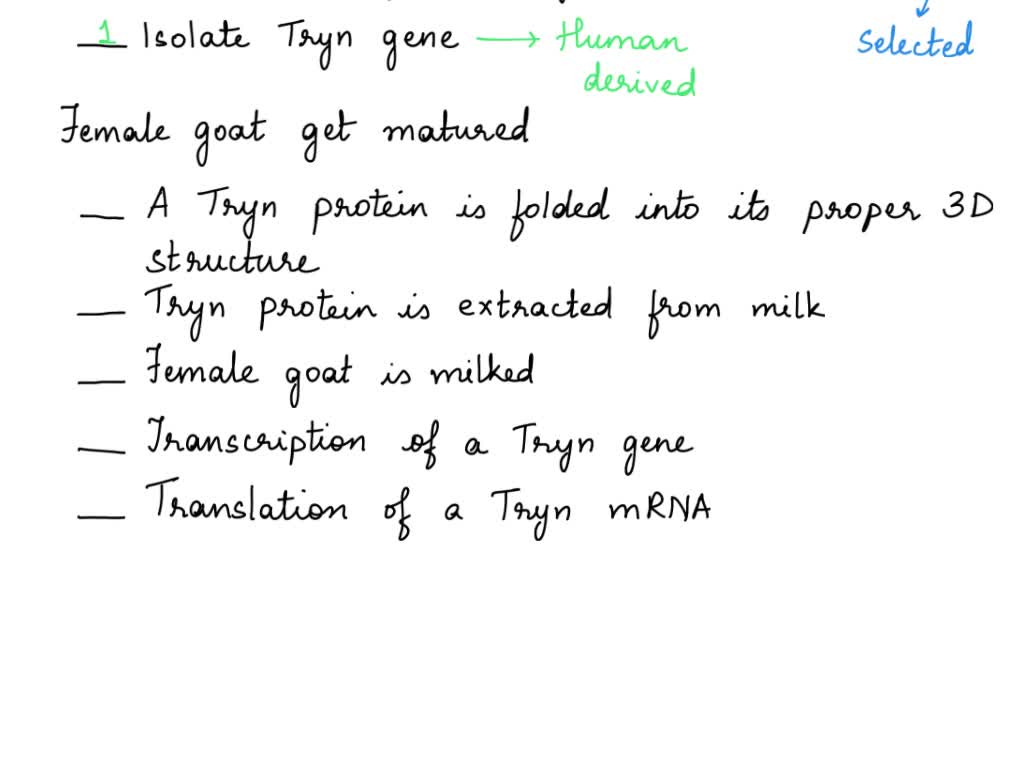 1 Isolate Tryn gene → Human derived
Selected
Female goat get matured
__ A Tryn protein is folded into its proper 3D
structure
__ Tryn protein is extracted from milk
__ Female goat is milked
__ Transcription of a Tryn gene
__ Translation of a Tryn mRNA